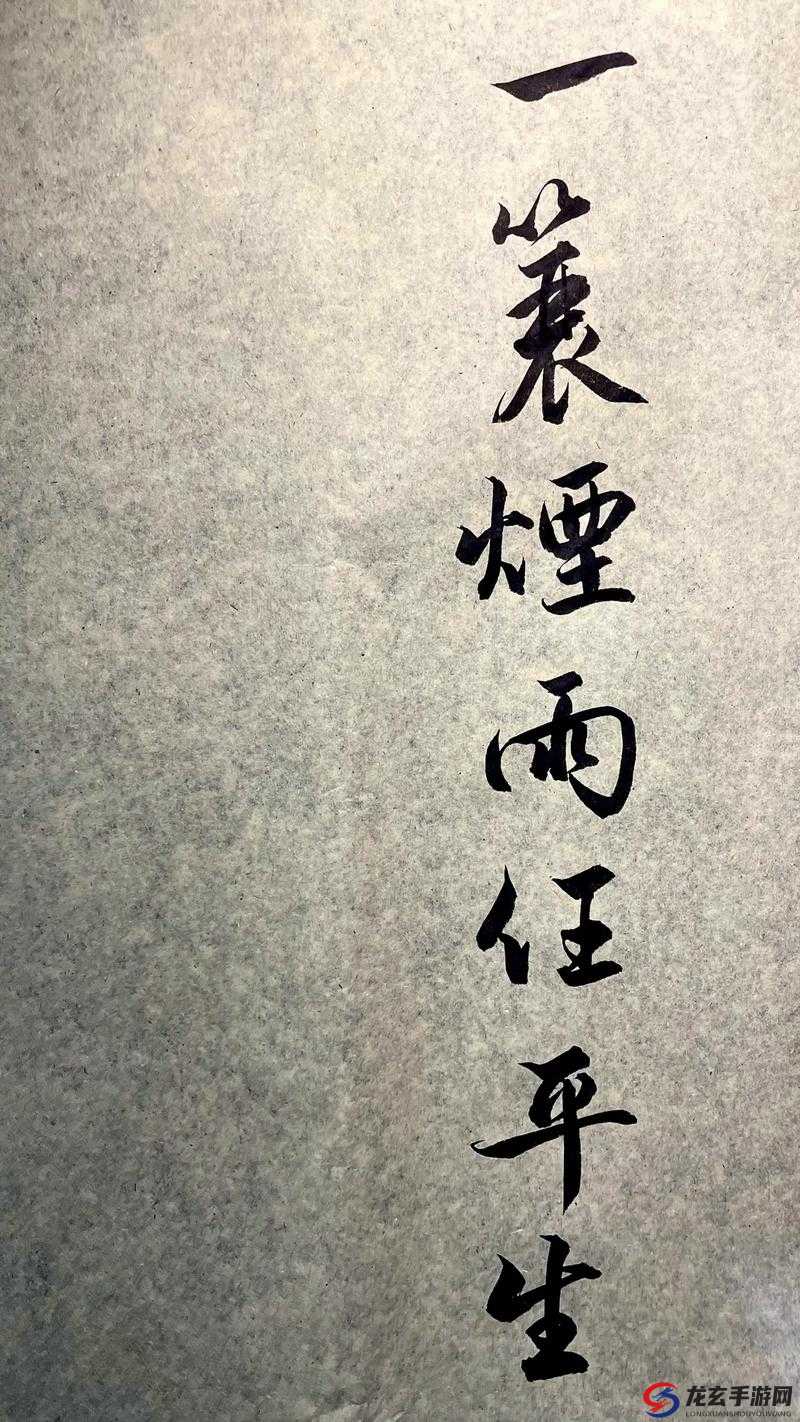 一蓑煙雨任平生
龙玄手游网
LONGXUANSHOUYOUWANG